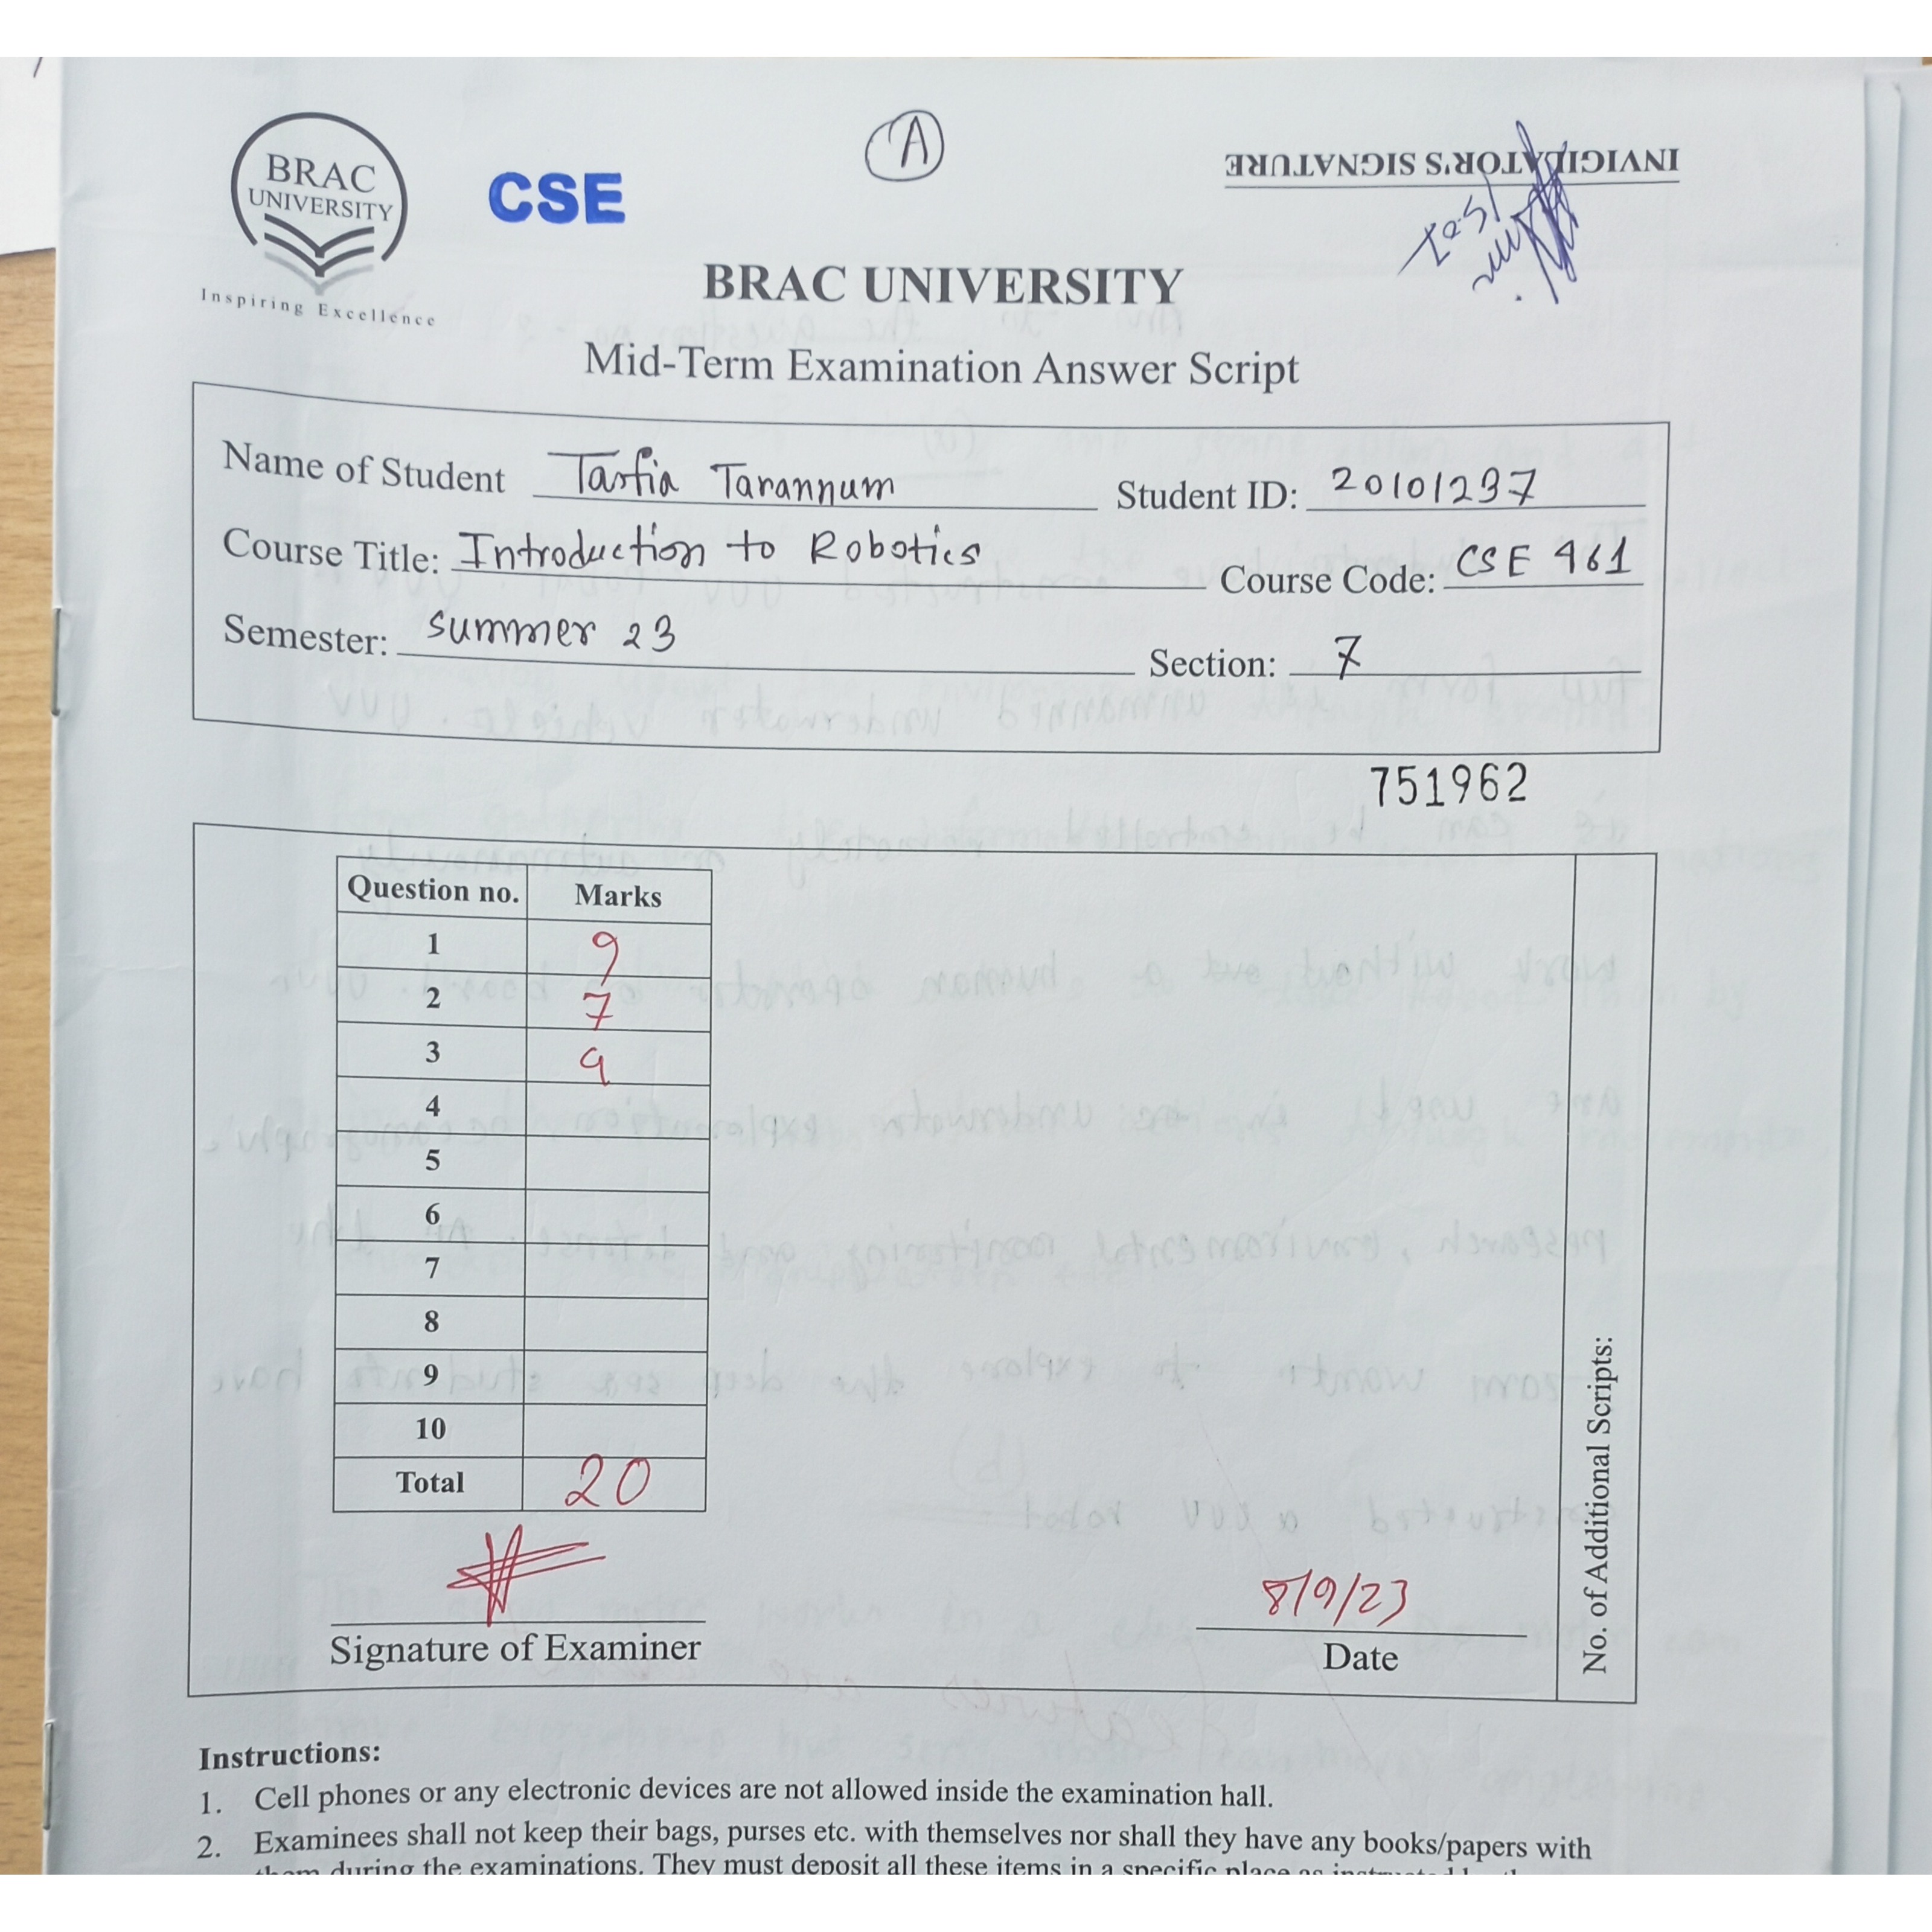 BRAC
UNIVERSITY
Inspiring Excellence
CSE
A
INVIGILATOR'S SIGNATURE
BRAC UNIVERSITY
Mid-Term Examination Answer Script
Name of Student Tasfia Tarannum Student ID: 20101237
Course Title: Introduction to Robotics Course Code: CSE 461
Semester: Summer 23 Section: 7
751962
Question no. Marks
1 9
2 7
3 4
4
5
6
7
8
9
10
Total 20
Signature of Examiner
8/9/23
Date
No. of Additional Scripts:
Instructions:
1. Cell phones or any electronic devices are not allowed inside the examination hall.
2. Examinees shall not keep their bags, purses etc. with themselves nor shall they have any books/papers with
them during the examinations. They must deposit all these items in a specific place as